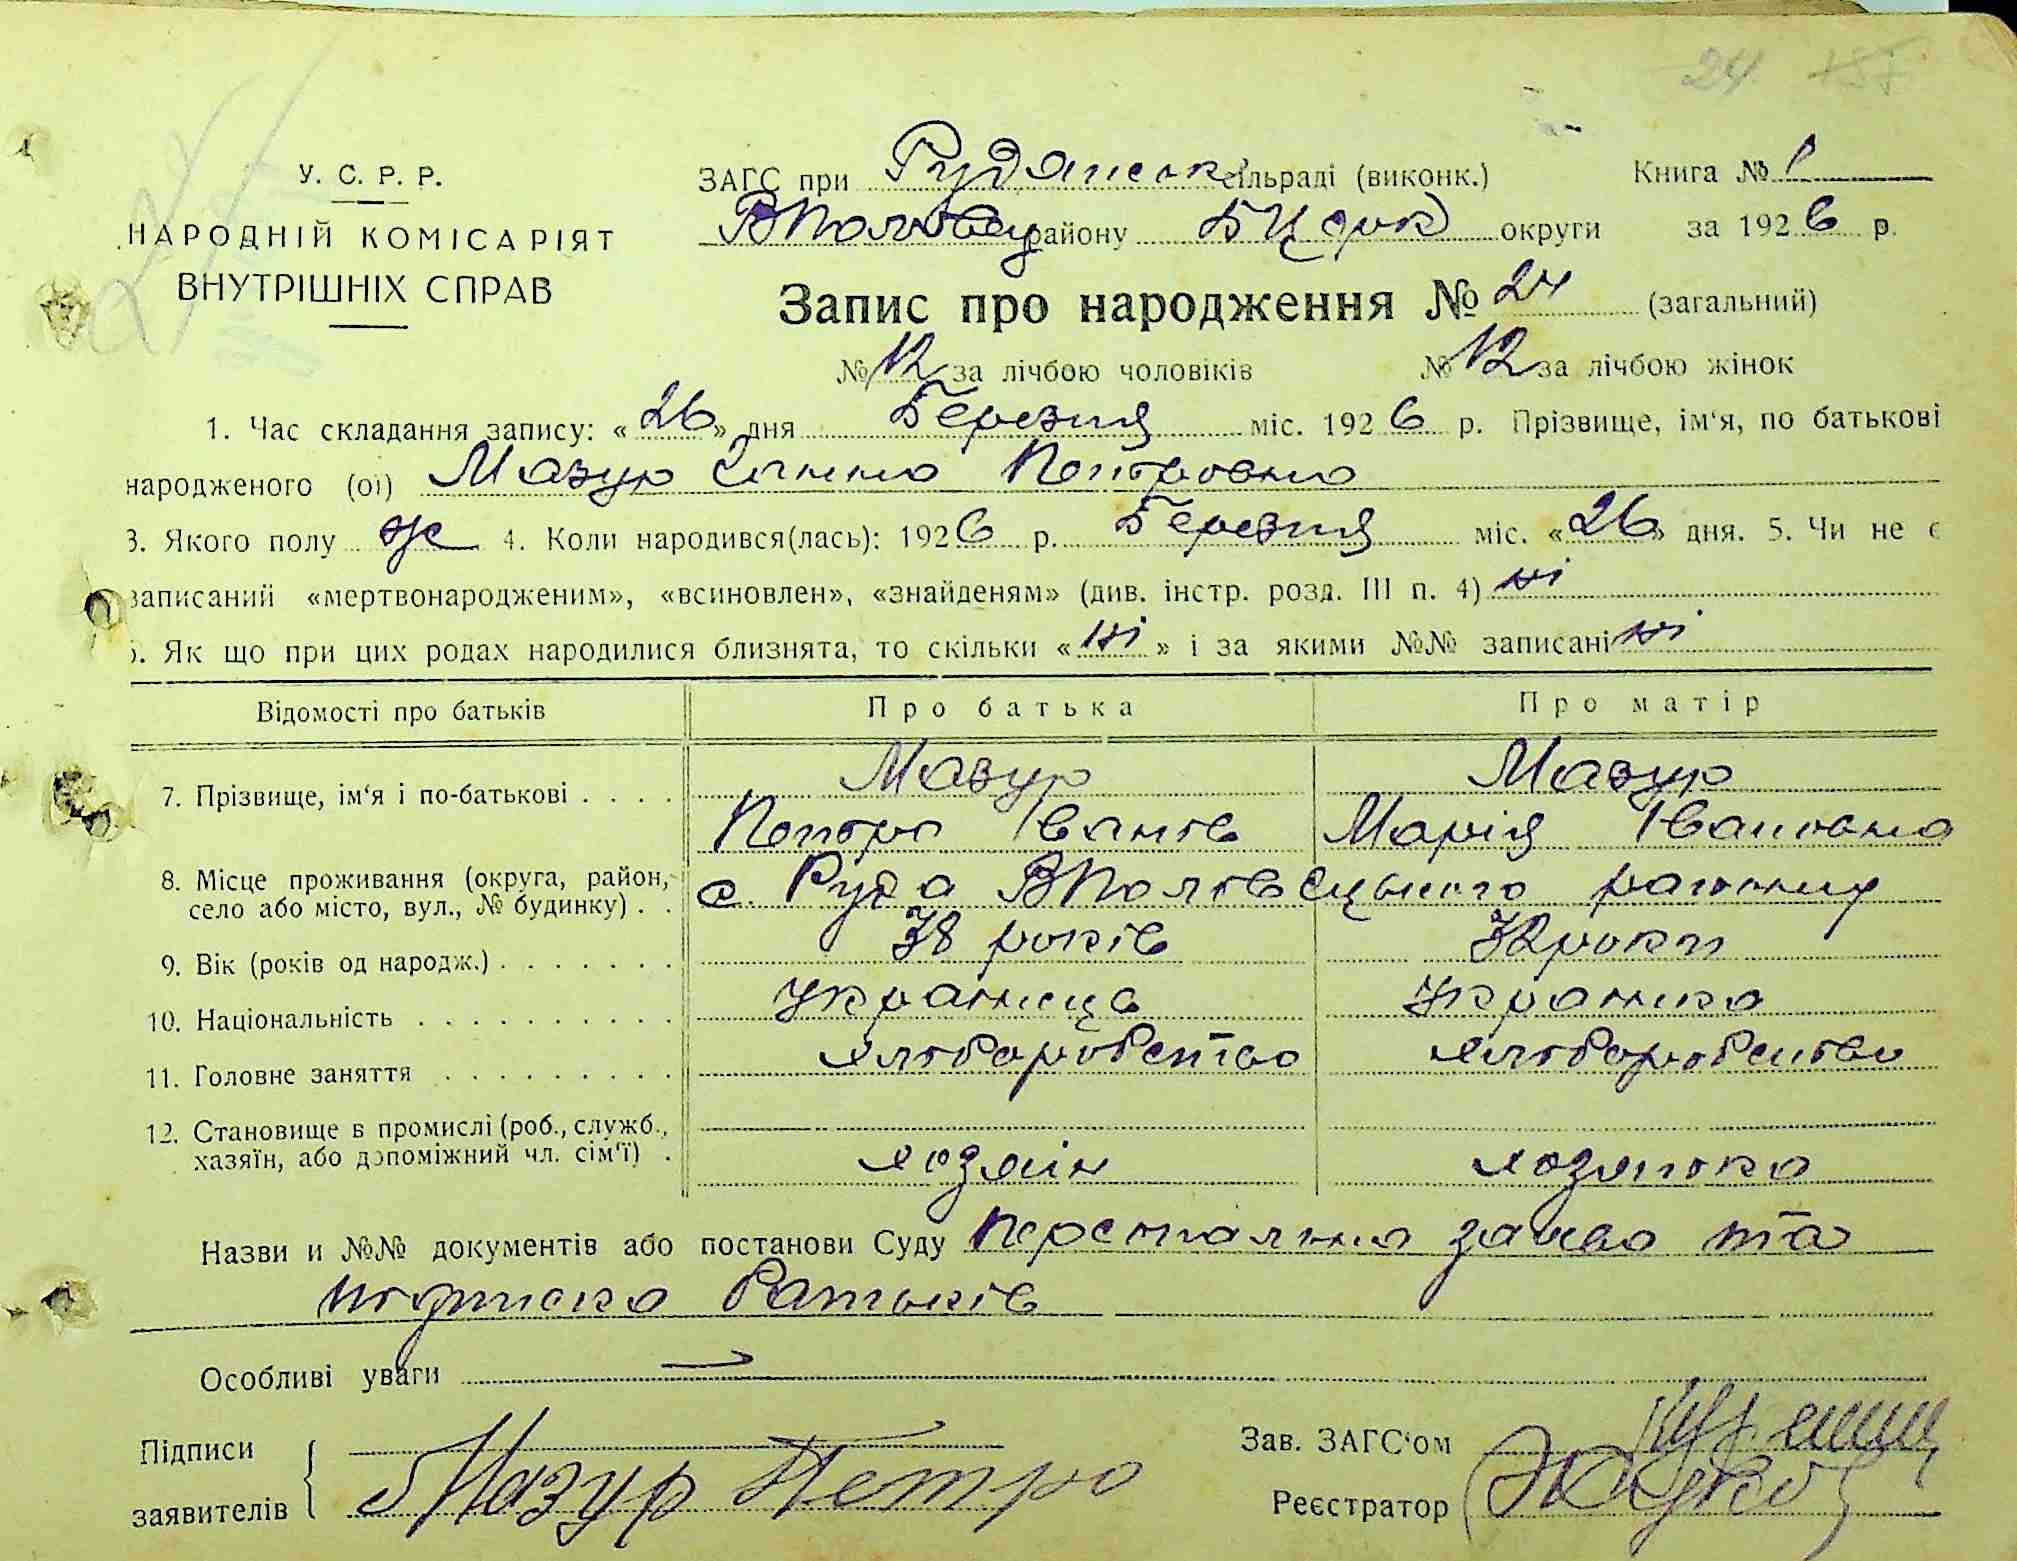 24
У. С. Р. Р.
НАРОДНІЙ КОМІСАРІЯТ
ВНУТРІШНІХ СПРАВ
ЗАГС при Рудянськ сільраді (виконк.) Книга № 1
ВПоловец району БЦерк округи за 1926 р.
Запис про народження № 24 (загальний)
№ 12 за лічбою чоловіків № 12 за лічбою жінок
1. Час складання запису: «26» дня Березня міс. 1926 р. Прізвище, ім'я, по батькові
народженого (ої) Мазур Ганна Петровна
3. Якого полу ж 4. Коли народився(лась): 1926 р. Березня міс. «26» дня. 5. Чи не є
записаний «мертвонародженим», «всиновлен», «знайденям» (див. інстр. розд. III п. 4) ні
6. Як що при цих родах народилися близнята, то скільки «ні» і за якими №№ записані ні
Відомості про батьків Про батька Про матір
7. Прізвище, ім'я і по-батькові . . . . Мазур Мазур
Петро Іванів Марія Івановна
8. Місце проживання (округа, район,
село або місто, вул., № будинку) . . с. Руда ВПоловецького району
9. Вік (років од народж.) . . . . . . . 38 років 32 роки
10. Національність . . . . . . . . . . українець українка
11. Головне заняття . . . . . . . . . хліборобство хліборобство
12. Становище в промислі (роб., служб.,
хазяїн, або допоміжний чл. сім'ї) . хозяїн хозяйка
Назви и №№ документів або постанови Суду Персональна заява та
подписка батьків
Особливі уваги
Підписи
заявителів Мазур Петро
Зав. ЗАГС'ом
Реєстратор